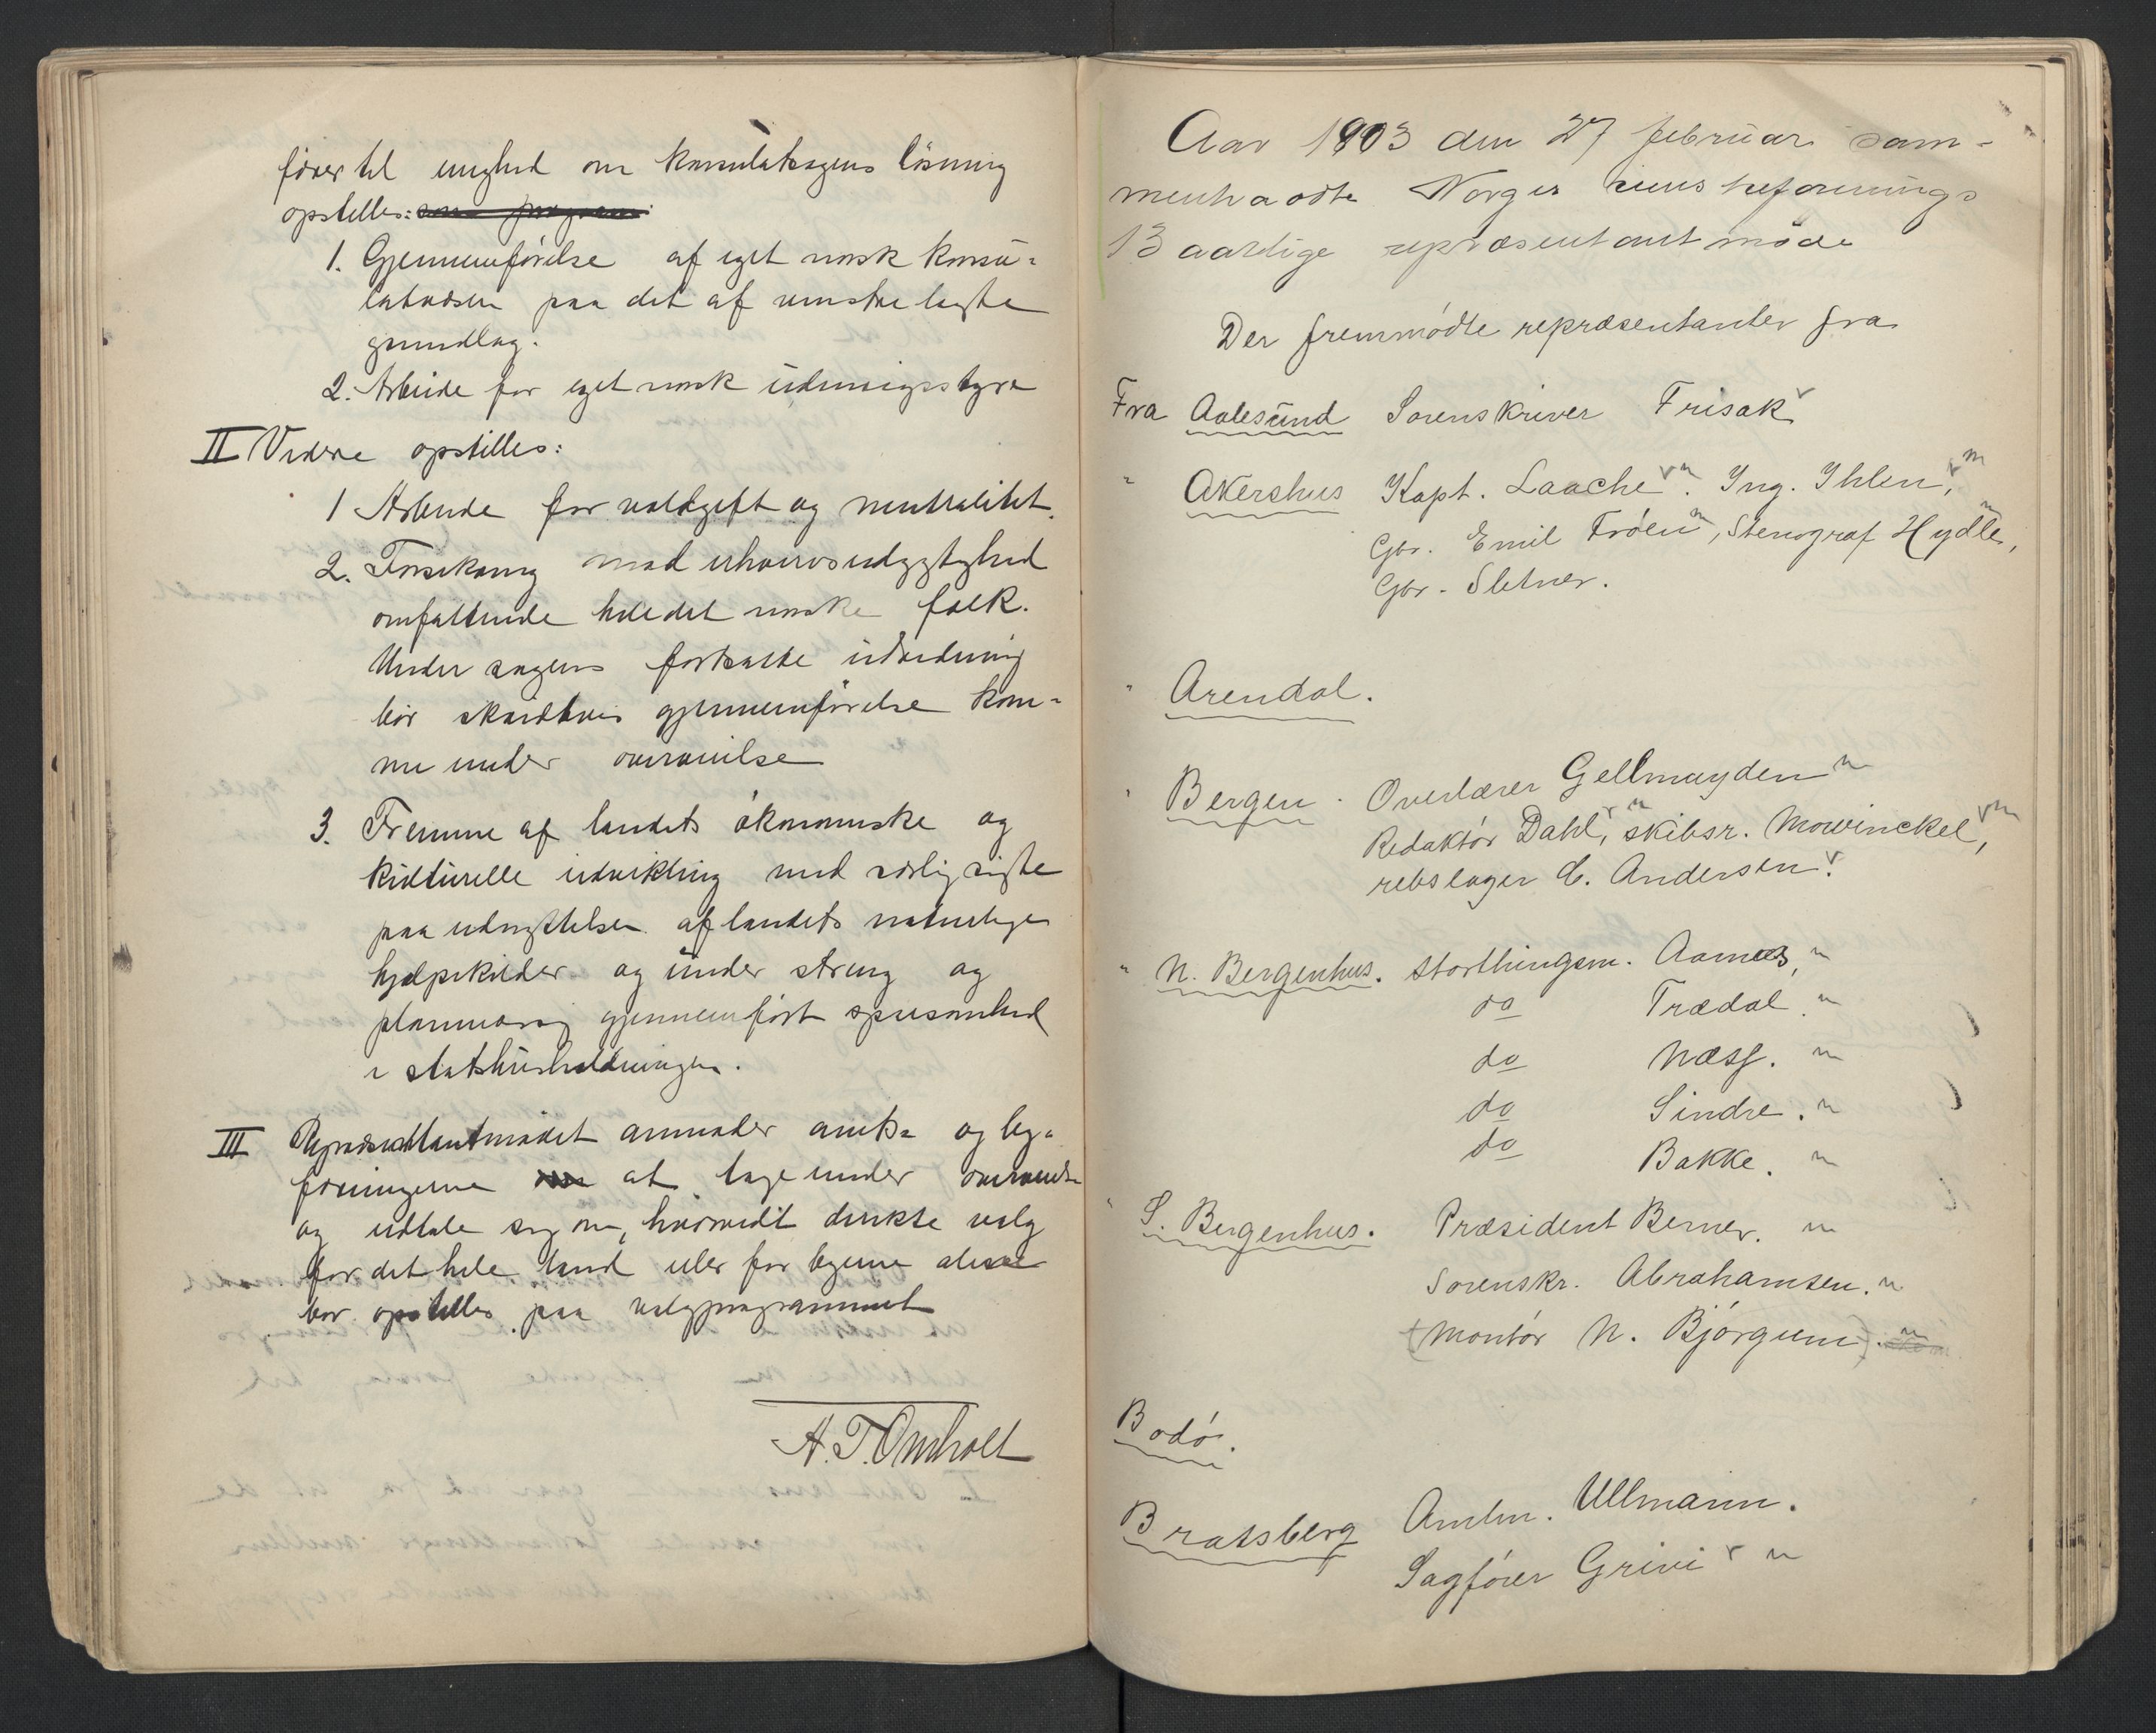 fører til enighed om konsulatsagens løsning
opstilles: som program
1. Gjennemførelse af eget norsk konsu-
latvæsen paa det af venstre lagte
grundlag.
2. Arbeide for eget norsk udenrigsstyre
II Videre opstilles:
1 Arbeide for voldgift og neutralitet.
2. Forsikring mod erhvervsudygtighed
omfattende hele det norske folk.
Under sagens fortsatte udredning
bør skridtvis gjennemførelse kom-
me under overveielse
3. Fremme af landets økonomiske og
kulturelle udvikling med særlig sigte
paa udnyttelsen af landets naturlige
hjælpekilder og under streng og
planmæssig gjennemført sparsomhed
i statshusholdningen.
III Repræsentantmødet anmoder amts- og by-
foreningerne at tage under overveielse
og udtale sig om, hvorvidt direkte valg
for det hele land eller for byerne alene
bør opstilles paa valgprogrammet
A. T. Omholt
Aar 1903 den 27 februar sam-
mentraadte Norges venstreforenings
13 aarlige repræsentantmøde
Der fremmødte repræsentanter fra
Fra Aalesund Sorenskriver Frisak
" Akershus Kapt. Laache. Ing. Ihlen,
Gbr. Emil Frøen, Stenograf Hydle,
Gbr. Sletner.
" Arendal.
" Bergen. Overlærer Gellmuyden
Redaktør Dahl, skibsr. Mowinckel,
rebslager C. Andersen.
" N. Bergenhus. Storthingsm. Aarnes,
do Trædal.
do Næss.
do Sindre.
do Bakke.
" S. Bergenhus. Præsident Berner.
Sorenskr. Abrahamsen.
(Montør N. Bjørgum).
Bodø.
Bratsberg Amtm. Ullmann.
Sagfører Grivi